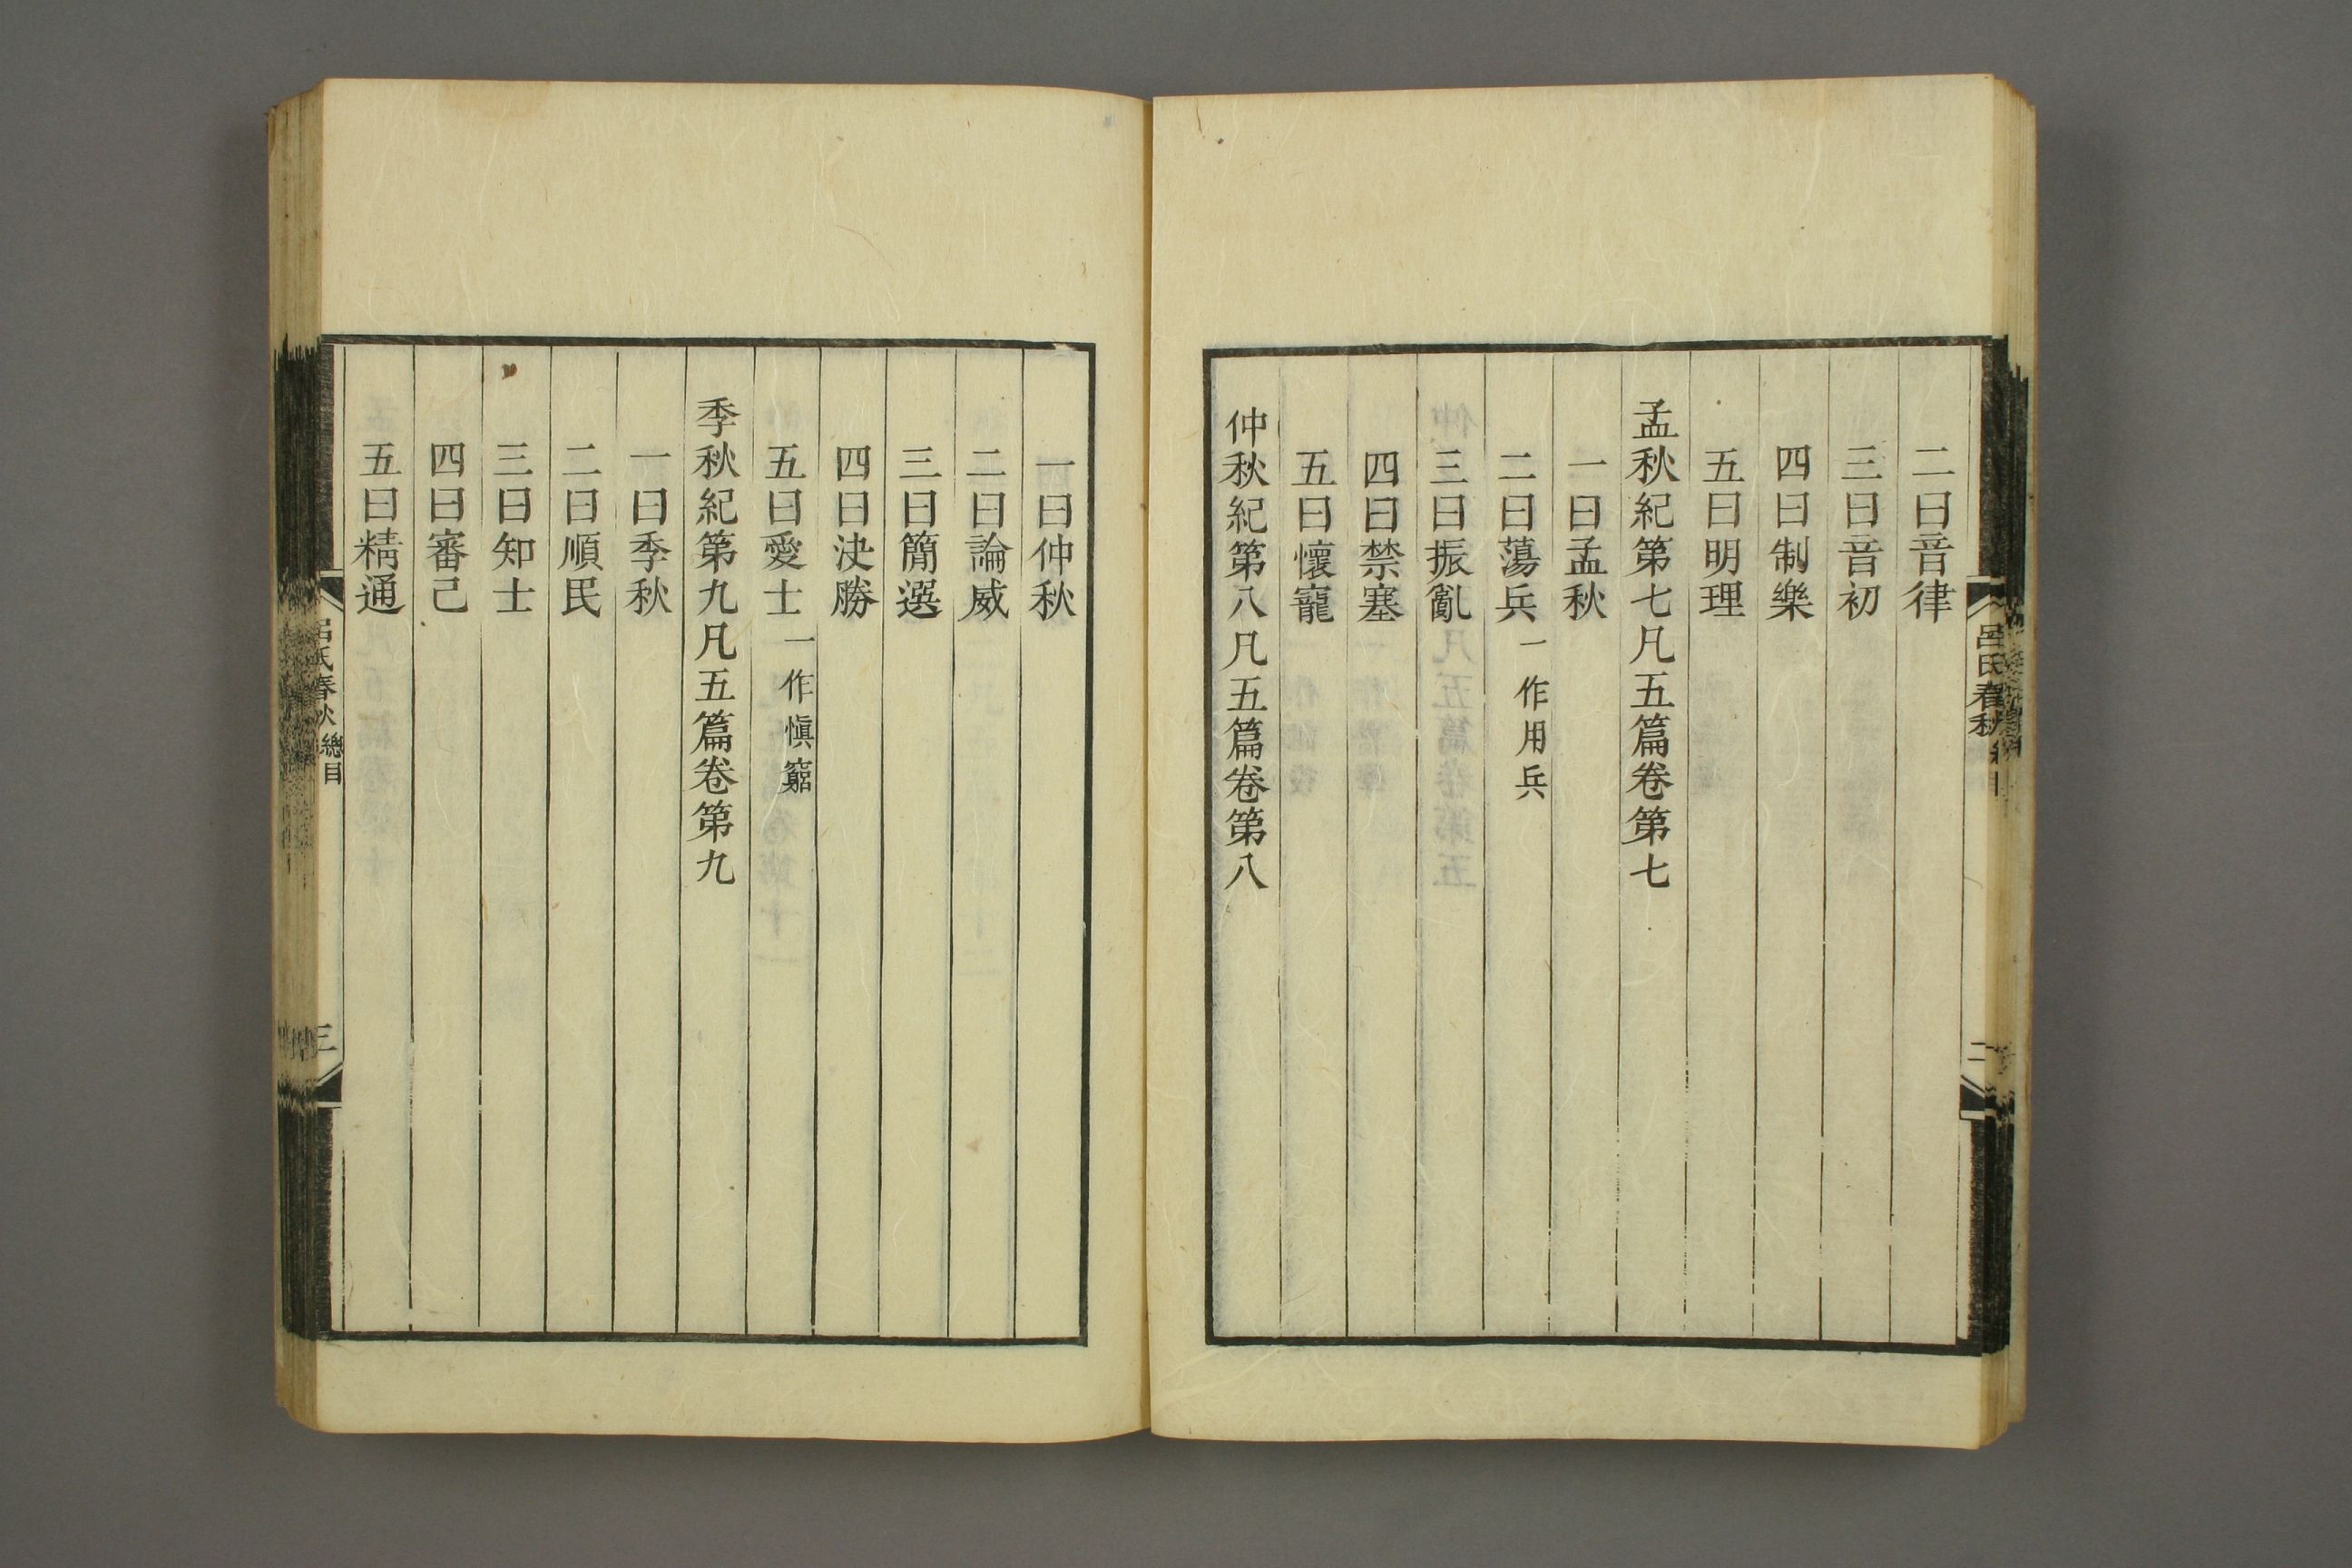 二曰音律
三曰音初
四曰制樂
五曰明理
孟秋紀第七凡五篇卷第七
一曰孟秋
二曰蕩兵一作用兵
三曰振亂
四曰禁塞
五曰懷寵
仲秋紀第八凡五篇卷第八
一曰仲秋
二曰論威
三曰簡選
四曰決勝
五曰愛士一作慎窮
季秋紀第九凡五篇卷第九
一曰季秋
二曰順民
三曰知士
四曰審己
五曰精通
呂氏春秋 總目
三